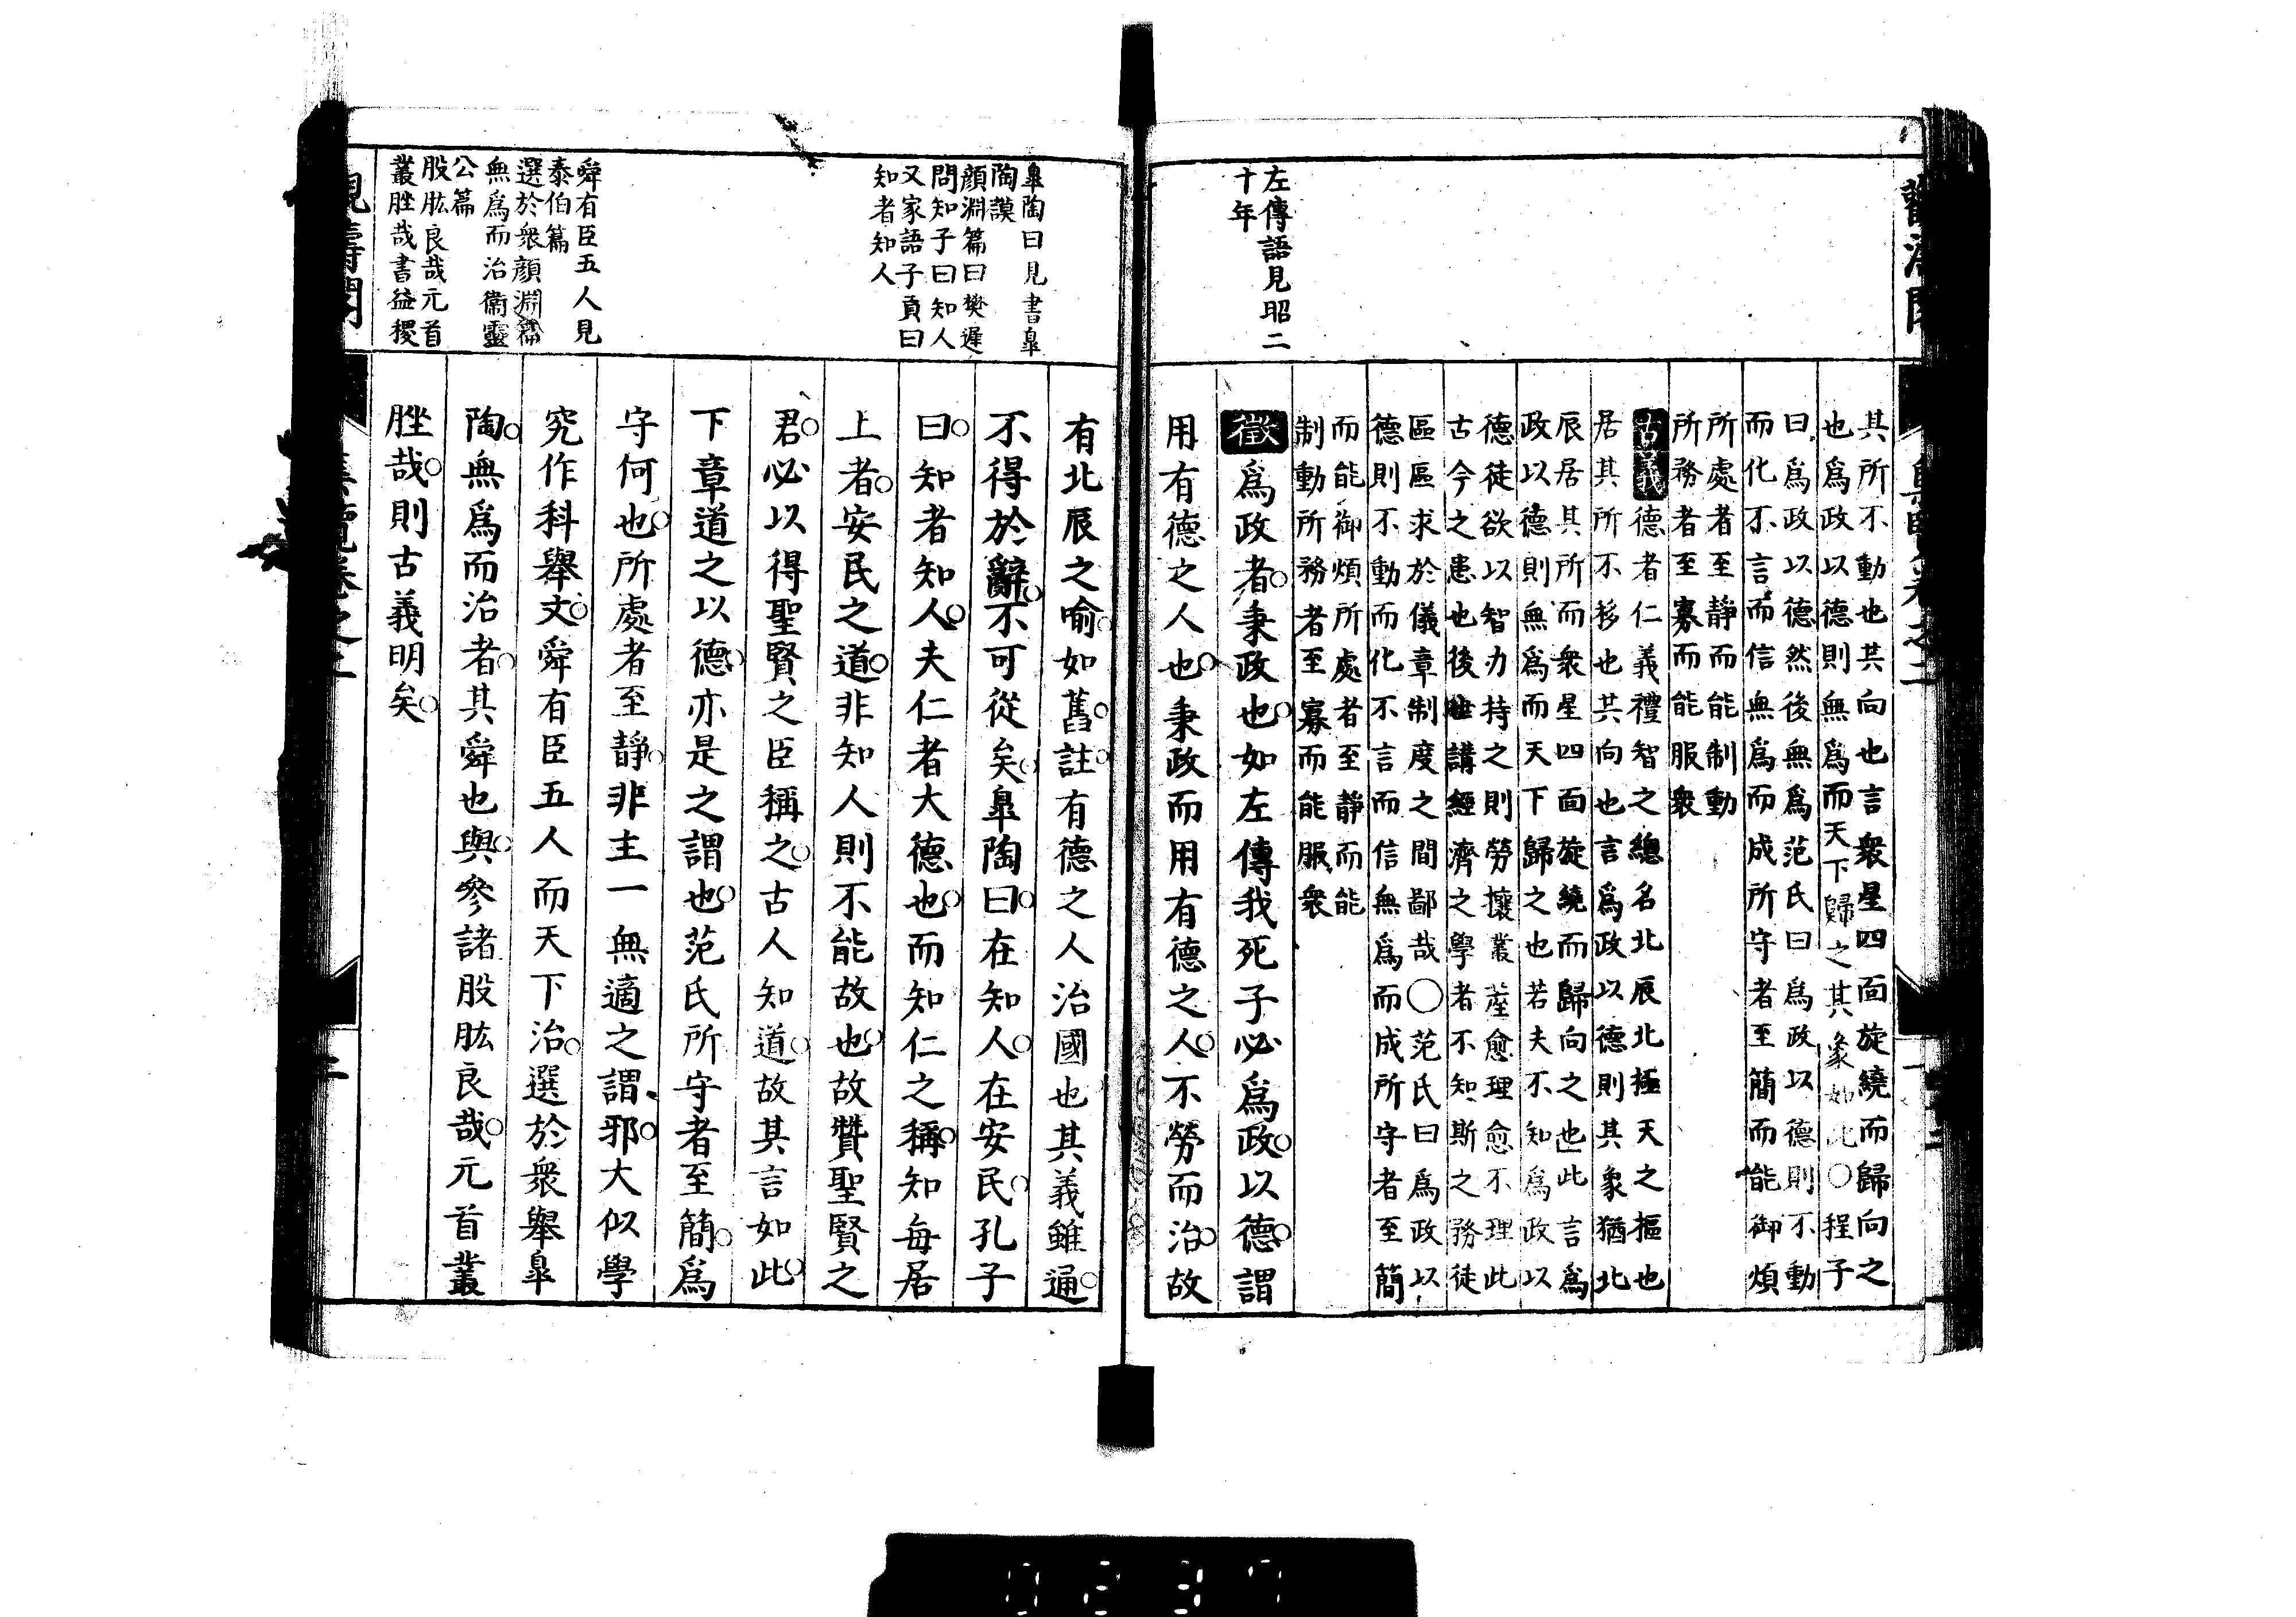 左傳語見昭二
十年
其所不動也其向也言衆星四面旋繞而歸向之
也爲政以德則無爲而天下歸之其象如此○程子
曰爲政以德然後無爲范氏曰爲政以德則不動
而化不言而信無爲而成所守者至簡而能御煩
所處者至靜而能制動
所務者至寡而能服衆
古義德者仁義禮智之總名北辰北極天之樞也
居其所不移也其向也言爲政以德則其象猶北
辰居其所而衆星四面旋繞而歸向之也此言爲
政以德則無爲而天下歸之也若夫不知爲政以
德徒欲以智力持之則勞攘叢蓙愈理愈不理此
古今之患也後世講經濟之學者不知斯之務徒
區區求於儀章制度之間鄙哉○范氏曰爲政以
德則不動而化不言而信無爲而成所守者至簡
而能御煩所處者至靜而能
制動所務者至寡而能服衆
徵爲政者秉政也如左傳我死子必爲政以德謂
用有德之人也秉政而用有德之人不勞而治故
皐陶曰見書皐
陶謨
顔淵篇曰樊遲
問知子曰知人
又家語子貢曰
知者知人
舜有臣五人見
泰伯篇
選於衆顔淵篇
無爲而治衞靈
公篇
股肱良哉元首
叢脞哉書益稷
有北辰之喻如舊註有德之人治國也其義雖通
不得於辭不可從矣皐陶曰在知人在安民孔子
曰知者知人夫仁者大德也而知仁之稱知每居
上者安民之道非知人則不能故也故贊聖賢之
君必以得聖賢之臣稱之古人知道故其言如此
下章道之以德亦是之謂也范氏所守者至簡爲
守何也所處者至靜非主一無適之謂邪大似學
究作科舉文舜有臣五人而天下治選於衆舉皐
陶無爲而治者其舜也與參諸股肱良哉元首叢
脞哉則古義明矣